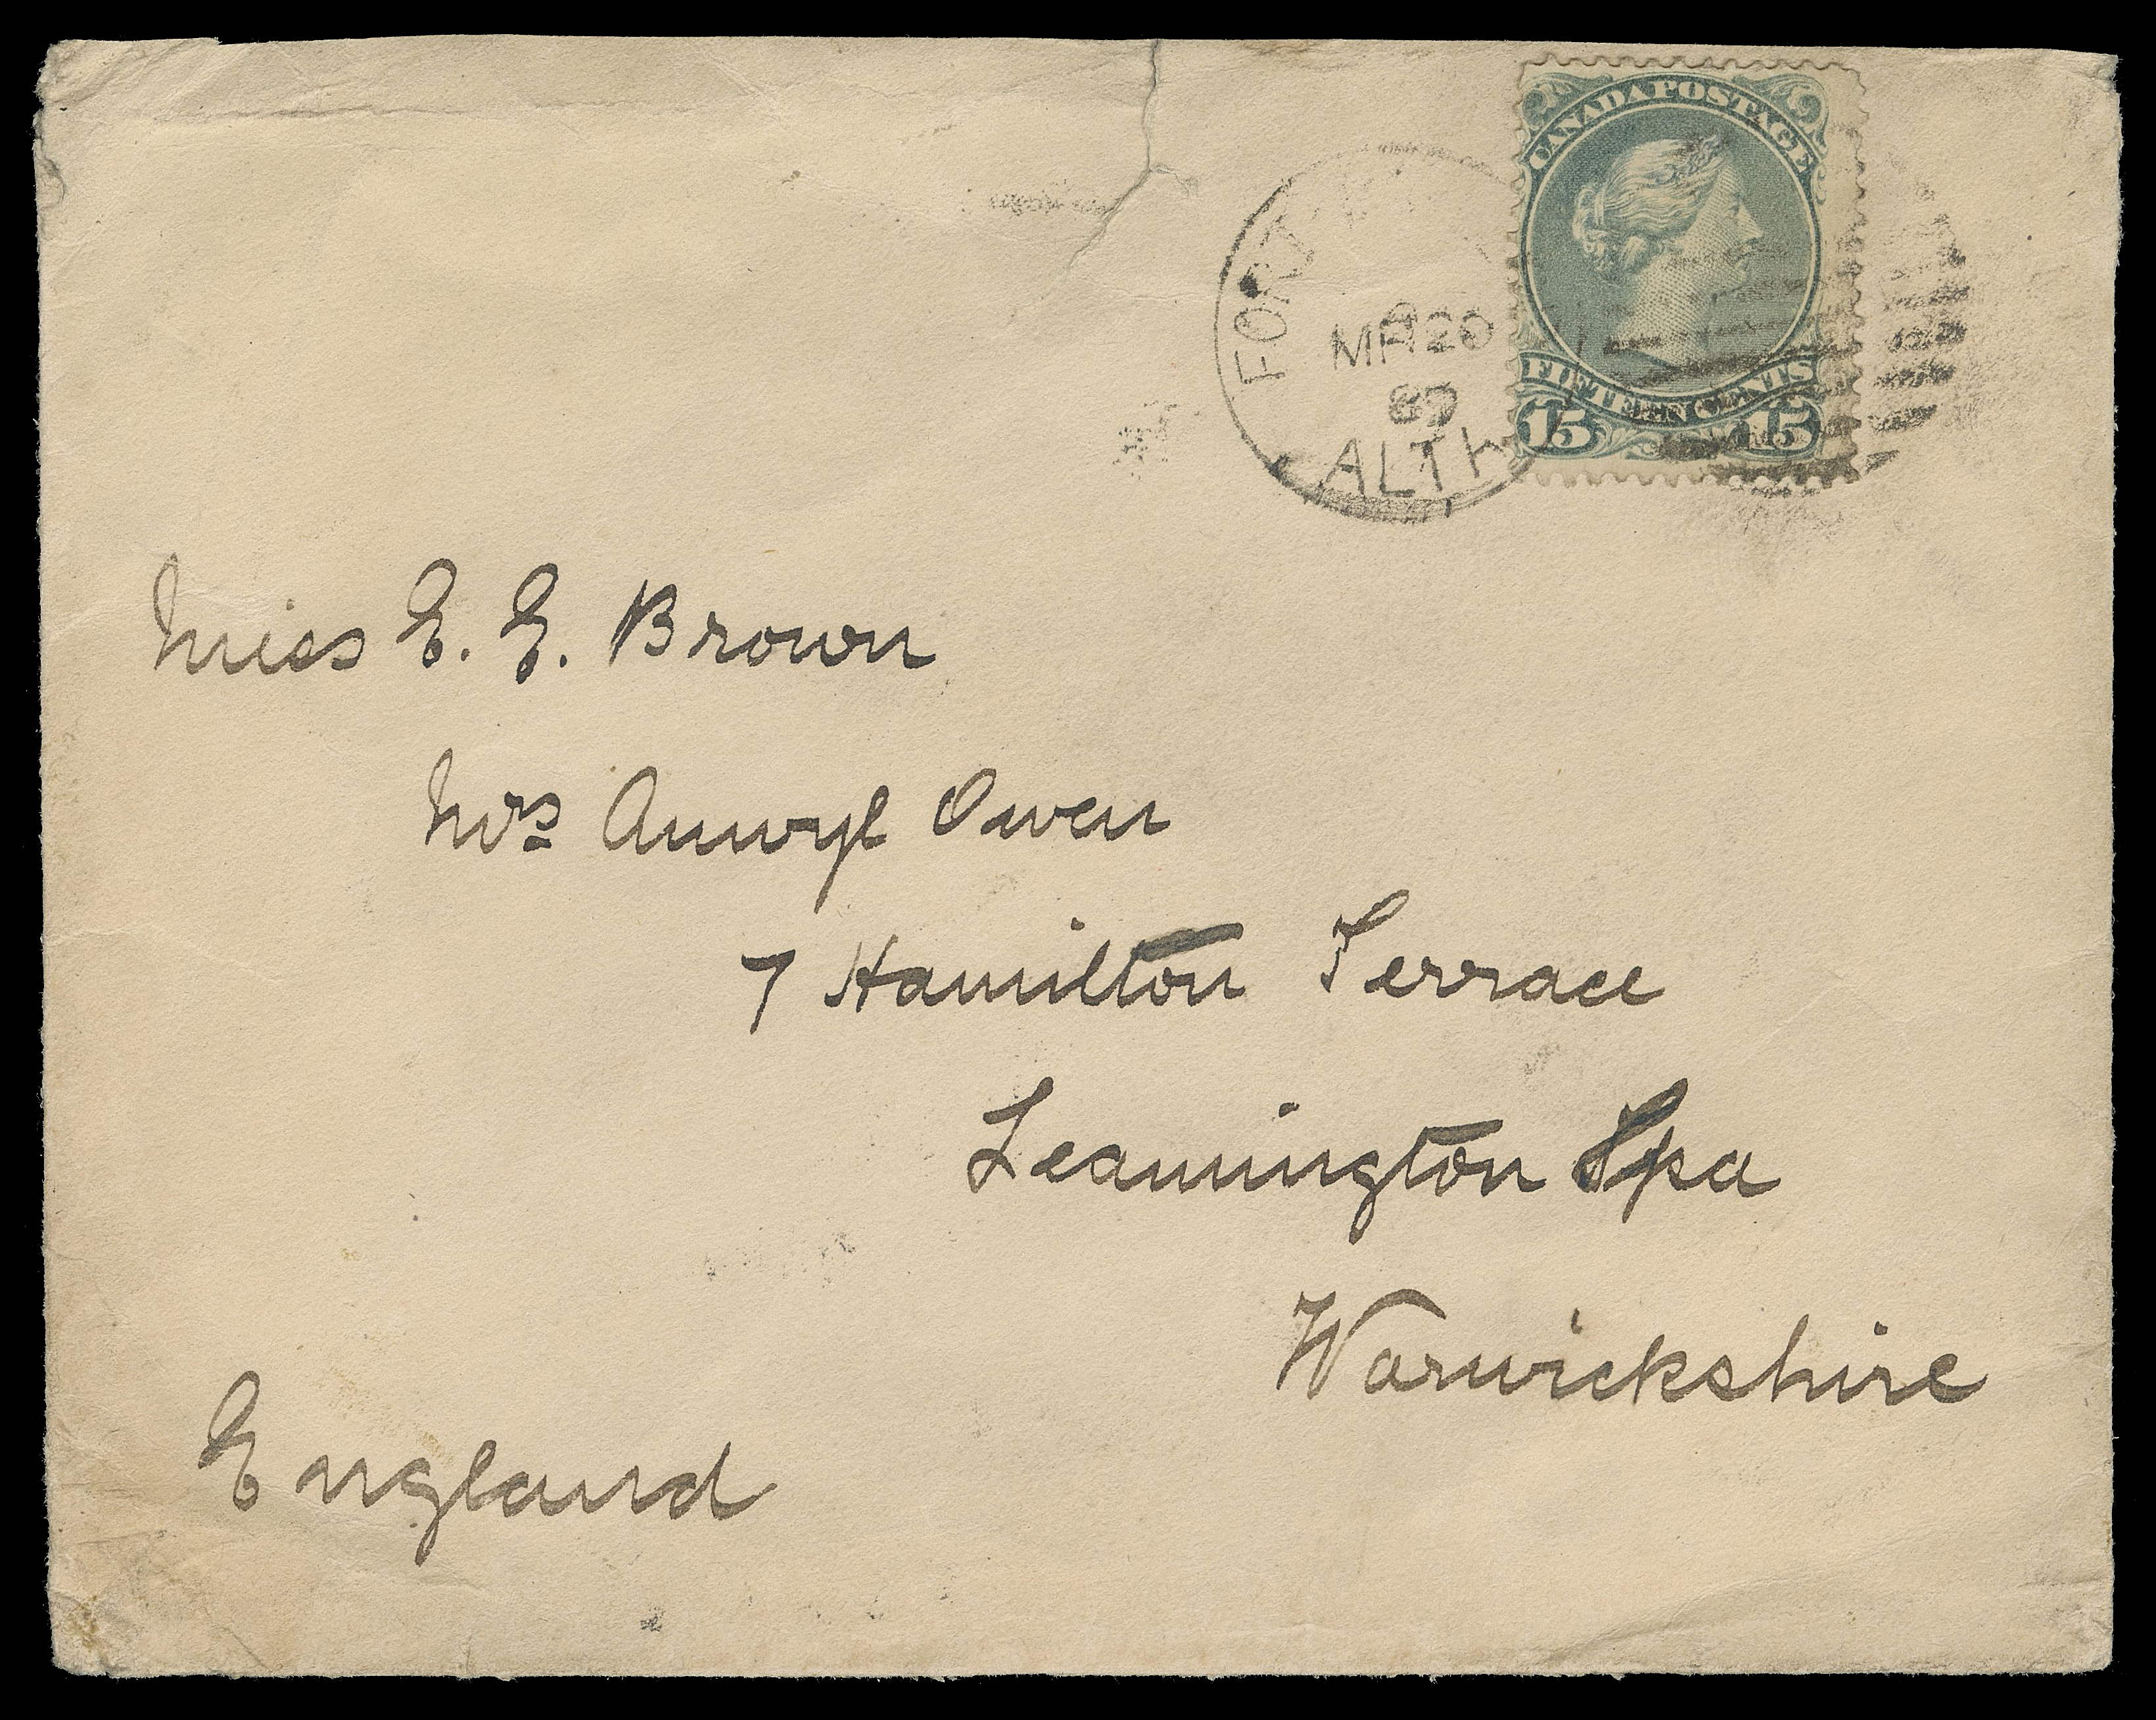 CANADA POSTAGE
FIFTEEN CENTS
15 15
FORT
MR 20
ALTA
Miss E. E. Brown
Mrs Anwyl Owen
7 Hamilton Terrace
Leamington Spa
Warwickshire
England